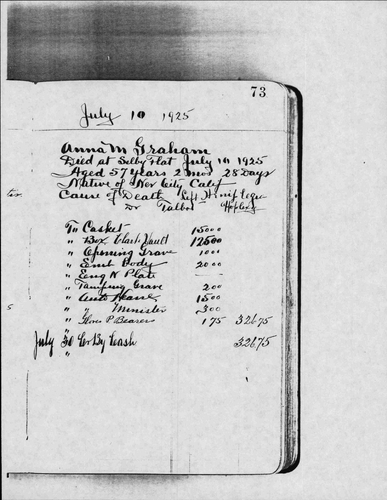 73
July 10 1925
Anna M Graham
Died at Selby Flat July 10 1925
Aged 57 Years 2 mos 28 Days
Native of Nev City Calif
Cause of Death Left
Dr Talbot
To Casket 15000
" Box Vault 12500
" Opning Grave 1000
" Emb Body 2000
" Eng N Plate
" Grave 200
" Auto Hearse 1500
" " Minister 500
" Gloves P Bearers 175 32675
July 30 Cr By Cash 32675
"